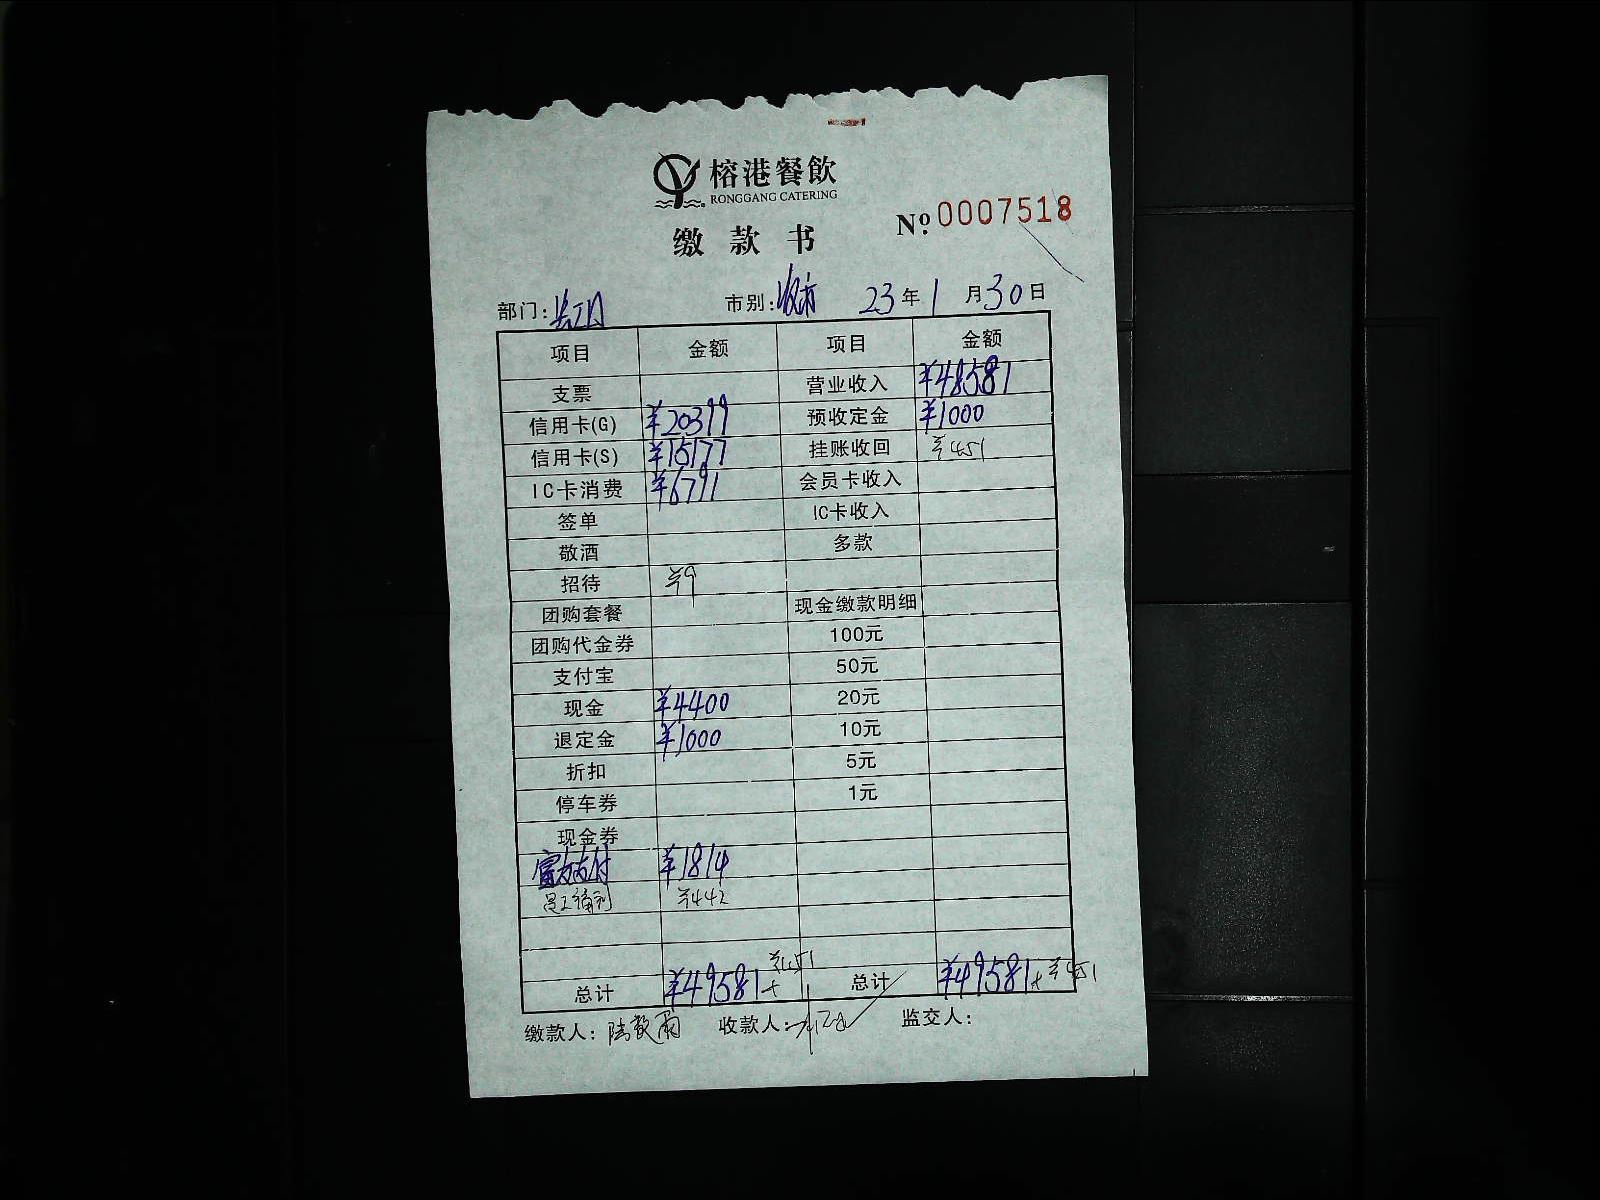 榕港餐飲
RONGGANG CATERING
缴款书
№ 0007518
部门: 市别: 23年1月30日
项目 金额 项目 金额
支票 营业收入 ¥48581
信用卡(G) ¥20399 预收定金 ¥1000
信用卡(S) ¥15177 挂账收回 ¥451
IC卡消费 ¥6791 会员卡收入
签单 IC卡收入
敬酒 多款
招待 ¥9
团购套餐 现金缴款明细
团购代金券 100元
支付宝 50元
现金 ¥4400 20元
退定金 ¥1000 10元
折扣 5元
停车券 1元
现金券
富友支付 ¥1814
员工福利 ¥442
总计 ¥49581+¥451 总计 ¥49581+¥451
缴款人: 收款人: 监交人: